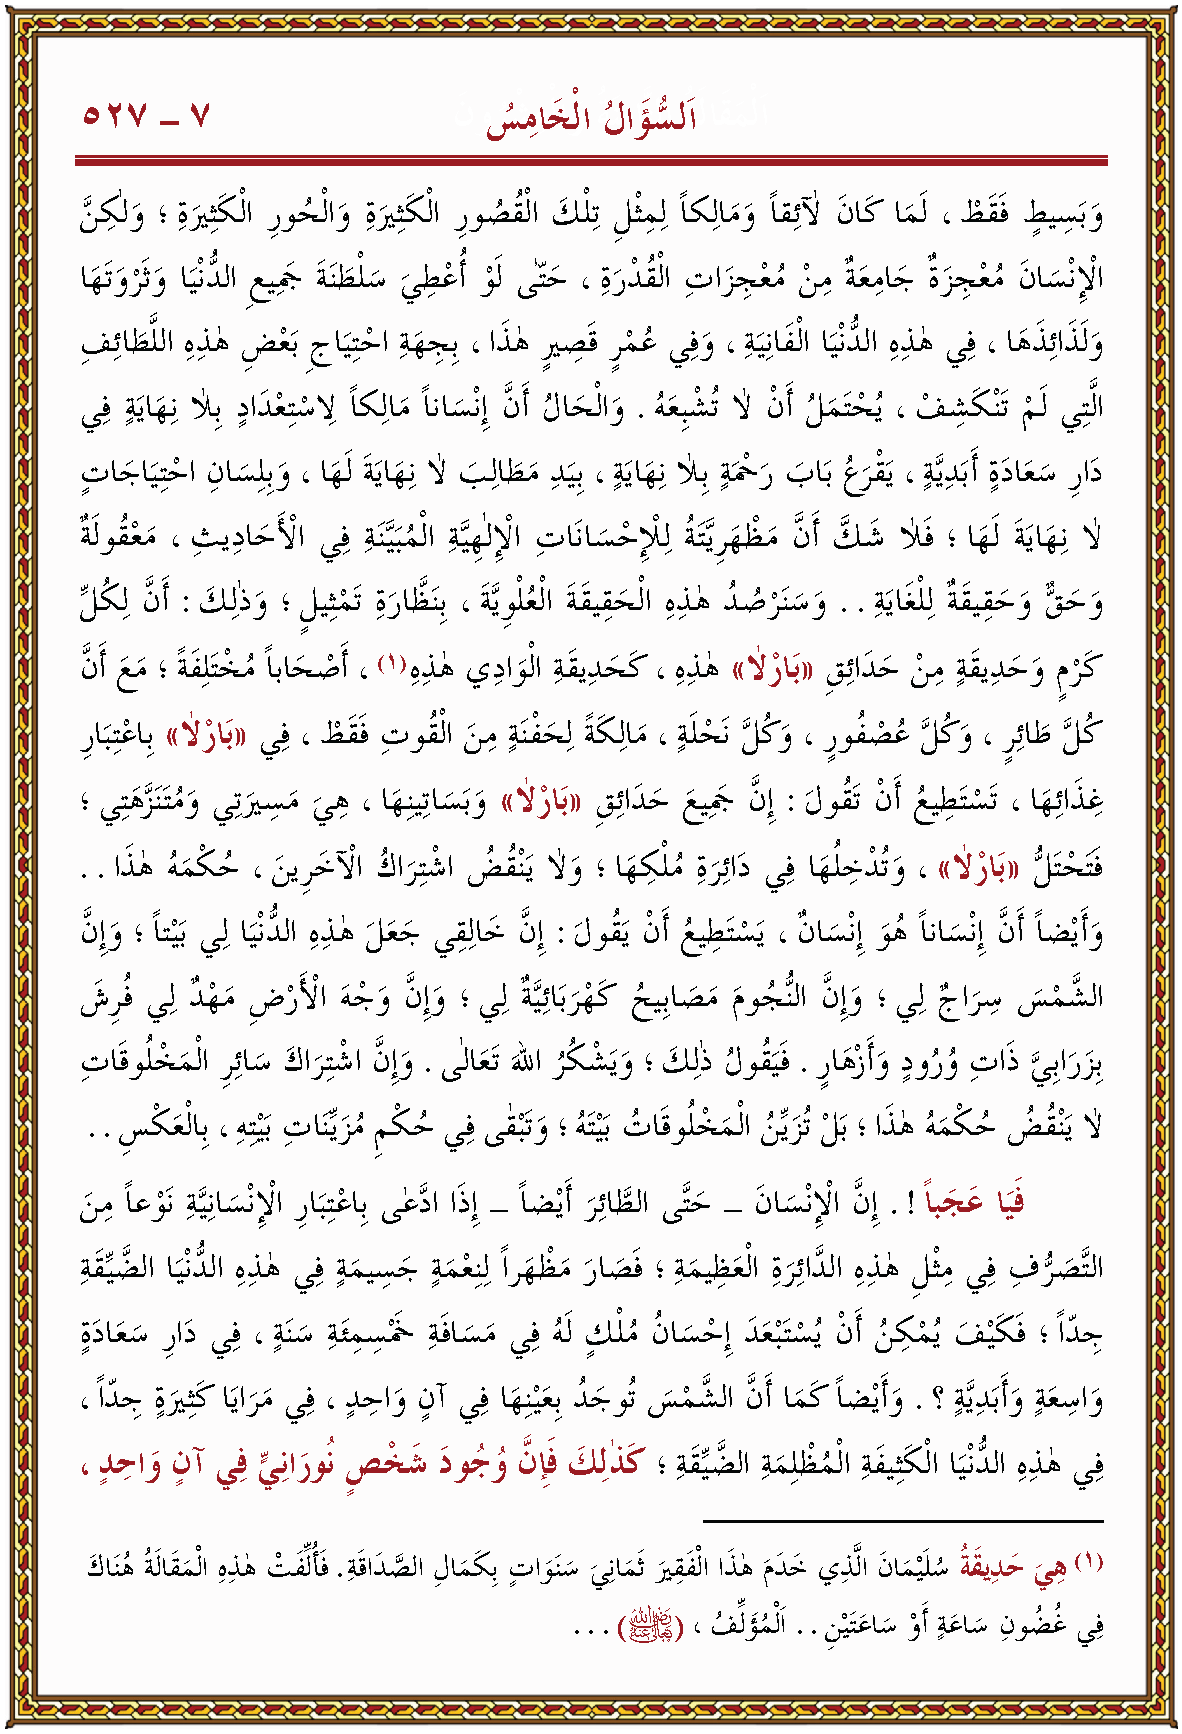 اَلسُّؤَالُ الْخَامِسُ ٧ ـ ٥٢٧
وَبَسِيطٍ فَقَطْ ، لَمَا كَانَ لٰآئِقاً وَمَالِكاً لِمِثْلِ تِلْكَ الْقُصُورِ الْكَثِيرَةِ وَالْحُورِ الْكَثِيرَةِ ؛ وَلٰكِنَّ
الْإِنْسَانَ مُعْجِزَةٌ جَامِعَةٌ مِنْ مُعْجِزَاتِ الْقُدْرَةِ ، حَتّٰى لَوْ أُعْطِيَ سَلْطَنَةَ جَمِيعِ الدُّنْيَا وَثَرْوَتَهَا
وَلَذَائِذَهَا ، فِي هٰذِهِ الدُّنْيَا الْفَانِيَةِ ، وَفِي عُمْرٍ قَصِيرٍ هٰذَا ، بِجِهَةِ احْتِيَاجِ بَعْضِ هٰذِهِ اللَّطَائِفِ
الَّتِي لَمْ تَنْكَشِفْ ، يُحْتَمَلُ أَنْ لٰا تُشْبِعَهُ . وَالْحَالُ أَنَّ إِنْسَاناً مَالِكاً لِاسْتِعْدَادٍ بِلٰا نِهَايَةٍ فِي
دَارِ سَعَادَةٍ أَبَدِيَّةٍ ، يَقْرَعُ بَابَ رَحْمَةٍ بِلٰا نِهَايَةٍ ، بِيَدِ مَطَالِبَ لٰا نِهَايَةَ لَهَا ، وَبِلِسَانِ احْتِيَاجَاتٍ
لٰا نِهَايَةَ لَهَا ؛ فَلٰا شَكَّ أَنَّ مَظْهَرِيَّتَهُ لِلْإِحْسَانَاتِ الْإِلٰهِيَّةِ الْمُبَيَّنَةِ فِي الْأَحَادِيثِ ، مَعْقُولَةٌ
وَحَقٌّ وَحَقِيقَةٌ لِلْغَايَةِ . . وَسَنَرْصُدُ هٰذِهِ الْحَقِيقَةَ الْعُلْوِيَّةَ ، بِنَظَّارَةِ تَمْثِيلٍ ؛ وَذٰلِكَ : أَنَّ لِكُلِّ
كَرْمٍ وَحَدِيقَةٍ مِنْ حَدَائِقِ «بَارْلٰا» هٰذِهِ ، كَحَدِيقَةِ الْوَادِي هٰذِهِ(١) ، أَصْحَاباً مُخْتَلِفَةً ؛ مَعَ أَنَّ
كُلَّ طَائِرٍ ، وَكُلَّ عُصْفُورٍ ، وَكُلَّ نَحْلَةٍ ، مَالِكَةً لِحَفْنَةٍ مِنَ الْقُوتِ فَقَطْ ، فِي «بَارْلٰا» بِاعْتِبَارِ
غِذَائِهَا ، تَسْتَطِيعُ أَنْ تَقُولَ : إِنَّ جَمِيعَ حَدَائِقِ «بَارْلٰا» وَبَسَاتِينِهَا ، هِيَ مَسِيرَتِي وَمُتَنَزَّهَتِي ؛
فَتَحْتَلُّ «بَارْلٰا» ، وَتُدْخِلُهَا فِي دَائِرَةِ مُلْكِهَا ؛ وَلٰا يَنْقُضُ اشْتِرَاكُ الْآخَرِينَ ، حُكْمَهُ هٰذَا . .
وَأَيْضاً أَنَّ إِنْسَاناً هُوَ إِنْسَانٌ ، يَسْتَطِيعُ أَنْ يَقُولَ : إِنَّ خَالِقِي جَعَلَ هٰذِهِ الدُّنْيَا لِي بَيْتاً ؛ وَإِنَّ
الشَّمْسَ سِرَاجٌ لِي ؛ وَإِنَّ النُّجُومَ مَصَابِيحُ كَهْرَبَائِيَّةٌ لِي ؛ وَإِنَّ وَجْهَ الْأَرْضِ مَهْدٌ لِي فُرِشَ
بِزَرَابِيَّ ذَاتِ وُرُودٍ وَأَزْهَارٍ . فَيَقُولُ ذٰلِكَ ؛ وَيَشْكُرُ اللهَ تَعَالٰى . وَإِنَّ اشْتِرَاكَ سَائِرِ الْمَخْلُوقَاتِ
لٰا يَنْقُضُ حُكْمَهُ هٰذَا ؛ بَلْ تُزَيِّنُ الْمَخْلُوقَاتُ بَيْتَهُ ؛ وَتَبْقٰى فِي حُكْمِ مُزَيِّنَاتِ بَيْتِهِ ، بِالْعَكْسِ . .
فَيَا عَجَباً ! . إِنَّ الْإِنْسَانَ ـ حَتَّى الطَّائِرَ أَيْضاً ـ إِذَا ادَّعٰى بِاعْتِبَارِ الْإِنْسَانِيَّةِ نَوْعاً مِنَ
التَّصَرُّفِ فِي مِثْلِ هٰذِهِ الدَّائِرَةِ الْعَظِيمَةِ ؛ فَصَارَ مَظْهَراً لِنِعْمَةٍ جَسِيمَةٍ فِي هٰذِهِ الدُّنْيَا الضَّيِّقَةِ
جِدّاً ؛ فَكَيْفَ يُمْكِنُ أَنْ يُسْتَبْعَدَ إِحْسَانُ مُلْكٍ لَهُ فِي مَسَافَةِ خَمْسِمِئَةِ سَنَةٍ ، فِي دَارِ سَعَادَةٍ
وَاسِعَةٍ وَأَبَدِيَّةٍ ؟ . وَأَيْضاً كَمَا أَنَّ الشَّمْسَ تُوجَدُ بِعَيْنِهَا فِي آنٍ وَاحِدٍ ، فِي مَرَايَا كَثِيرَةٍ جِدّاً ،
فِي هٰذِهِ الدُّنْيَا الْكَثِيفَةِ الْمُظْلِمَةِ الضَّيِّقَةِ ؛ كَذٰلِكَ فَإِنَّ وُجُودَ شَخْصٍ نُورَانِيٍّ فِي آنٍ وَاحِدٍ ،
(١) هِيَ حَدِيقَةُ سُلَيْمَانَ الَّذِي خَدَمَ هٰذَا الْفَقِيرَ ثَمَانِيَ سَنَوَاتٍ بِكَمَالِ الصَّدَاقَةِ . فَأُلِّفَتْ هٰذِهِ الْمَقَالَةُ هُنَاكَ
فِي غُضُونِ سَاعَةٍ أَوْ سَاعَتَيْنِ . . اَلْمُؤَلِّفُ ، (رَضِيَ اللهُ تَعَالٰى عَنْهُ) . . .